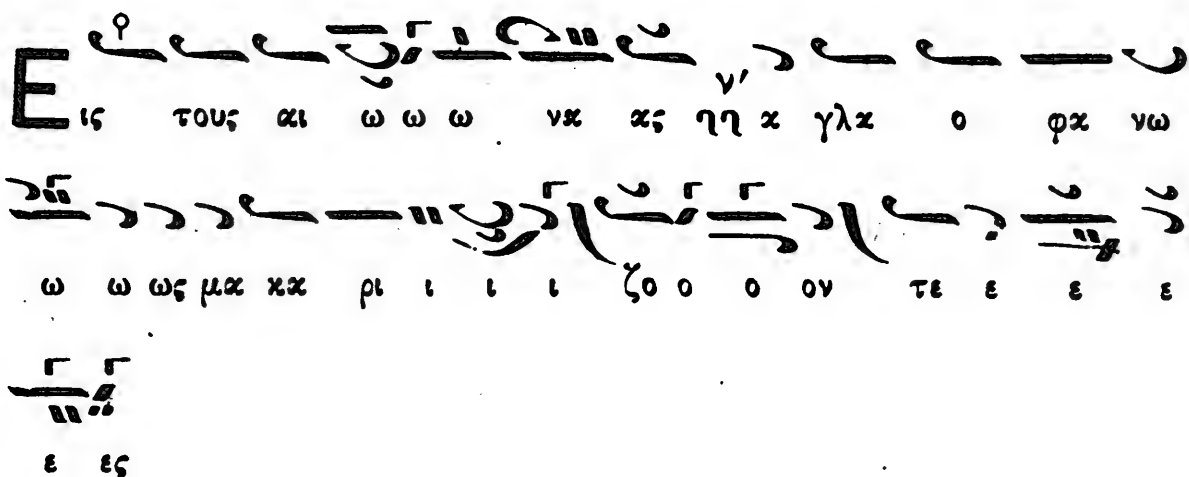 Εις τους αι ω ω ω να ας ηη α γλα ο φα νω
ν'
ω ω ως μα κα ρι ι ι ι ζο ο ο ον τε ε ε ε
ε ες